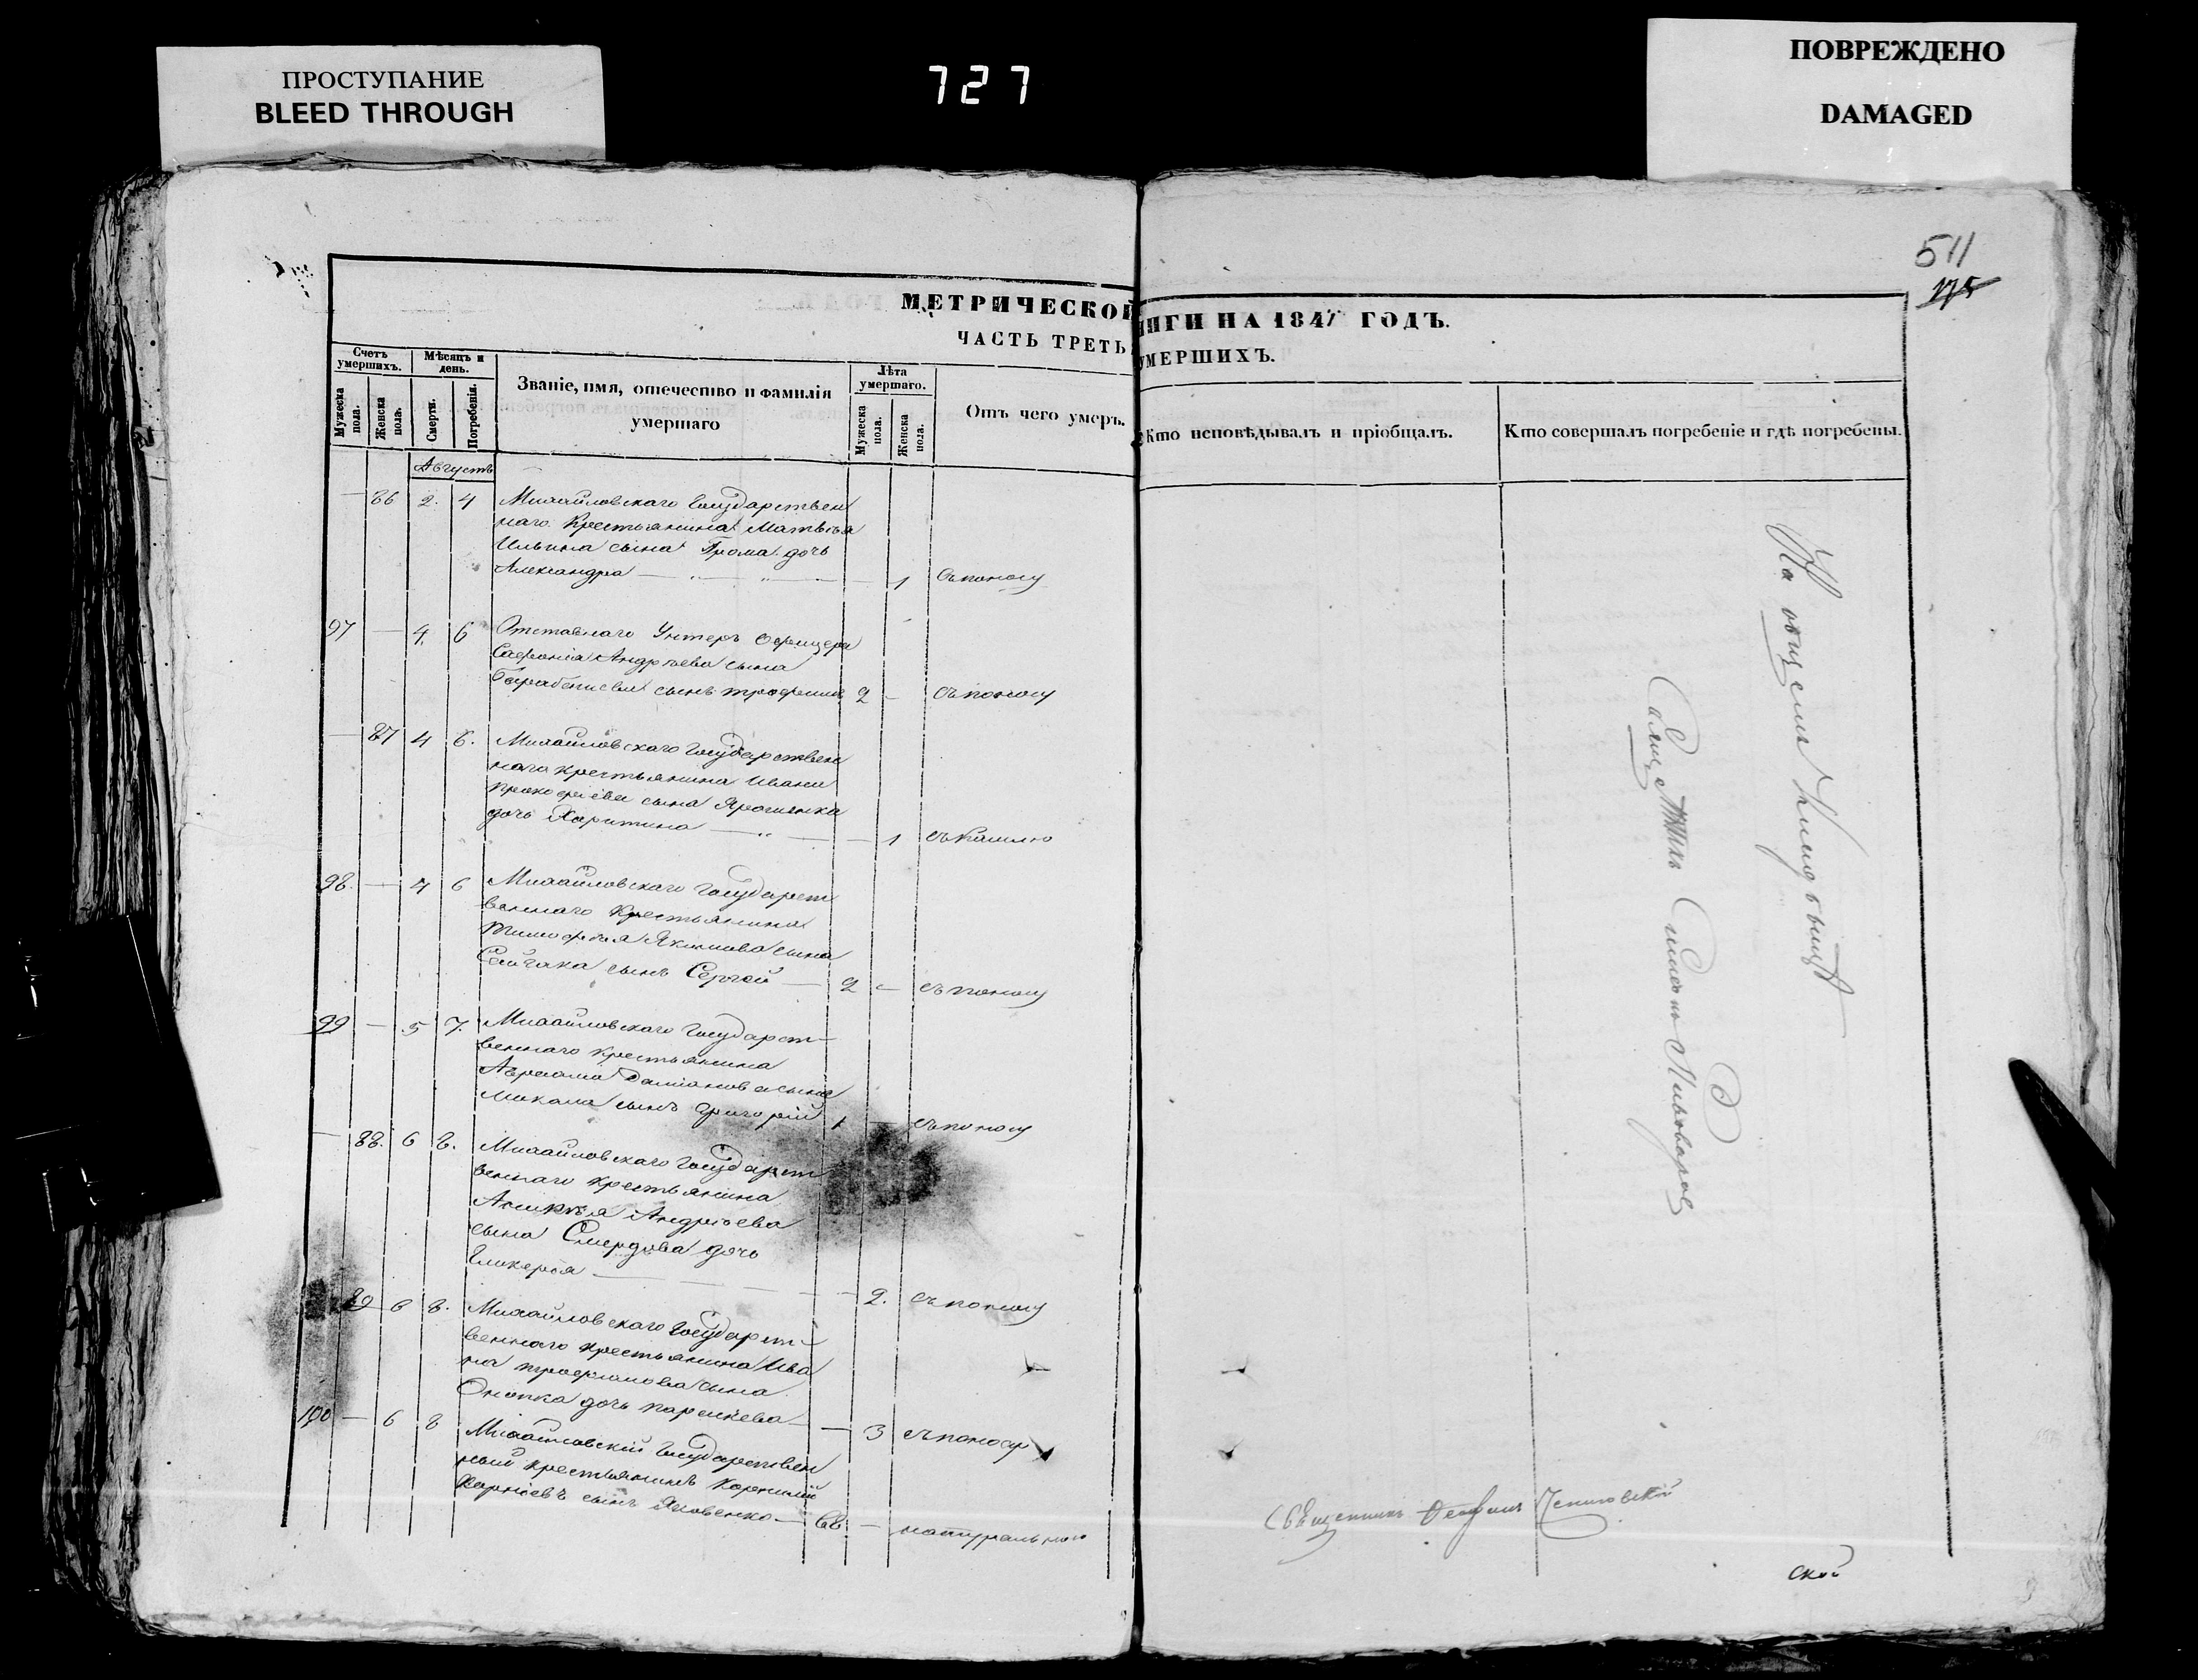 ПРОСТУПАНИЕ
BLEED THROUGH
727
ПОВРЕЖДЕНО
DAMAGED
511
175
МЕТРИЧЕСКОЙ
ИГИ НА 1847 ГОДЪ.
ЧАСТЬ ТРЕТЬ
УМЕРШИХЪ.
Счетъ умершихъ.
Мужеска пола.
Женска пола.
Мѣсяцъ и день.
Смерти.
Погребенія.
Званіе, имя, отечество и фамилія
умершаго
Лѣта умершаго.
Мужеска пола.
Женска пола.
Отъ чего умеръ.
Кто исповѣдывалъ и пріобщалъ.
Кто совершалъ погребеніе и гдѣ погребены.
Августъ
86 2. 4 Михайловскаго Государствен
наго Крестьянина Матвѣя
Ильина сына Грома дочь
Александра 1 съ поносу
97 4. 6 Отставнаго Унтеръ Офицера
Софонія Андрѣева сына
сынъ Трофимъ 2 съ поносу
87 4 6. Михайловскаго Государствен
наго крестьянина Ивана
Прокофіева сына Ярошенка
дочь Харитина 1 съ кашлю
98. 4 6 Михайловскаго Государст
веннаго Крестьянина
Тимофѣя Якимова сына
Сайгака сынъ Сергей 2 съ поносу
99 5 7. Михайловскаго Государст-
веннаго крестьянина
Авраама Даміанова сына
сынъ Григорій 1 съ поносу
88. 6 8. Михайловскаго Государст
веннаго крестьянина
Андрѣева
сына Смердова дочь
Гликерія 2. съ поносу
89 6 8. Михайловскаго Государст-
веннаго крестьянина Ива
на Трофимова сына
Онопка дочь Параскева 3 съ поносу
100 6 8 Михайловскій Государствен
ный крестьянинъ Корнилій
сынъ Яковенко 68 натурально
На
Симеонъ Пивоваров
Священникъ
ской